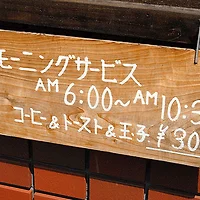 モーニングサービス
AM 6:00~AM 10:3
コーヒー&トースト&玉子 ¥30